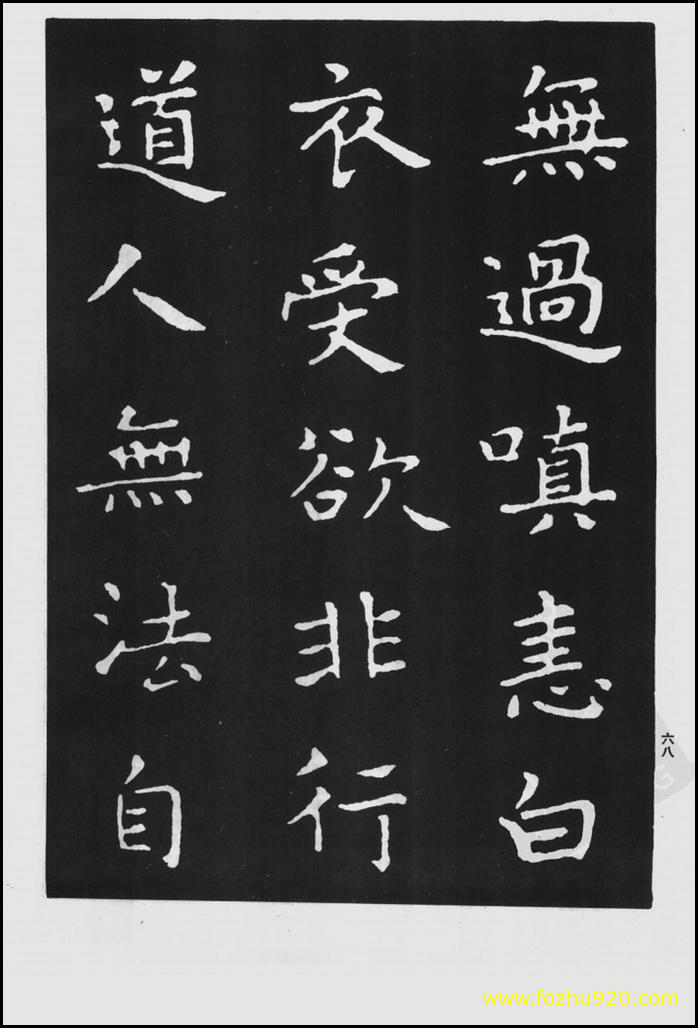 無過嗔恚白
衣受欲非行
道人無法自
六八
www.fozhu920.com